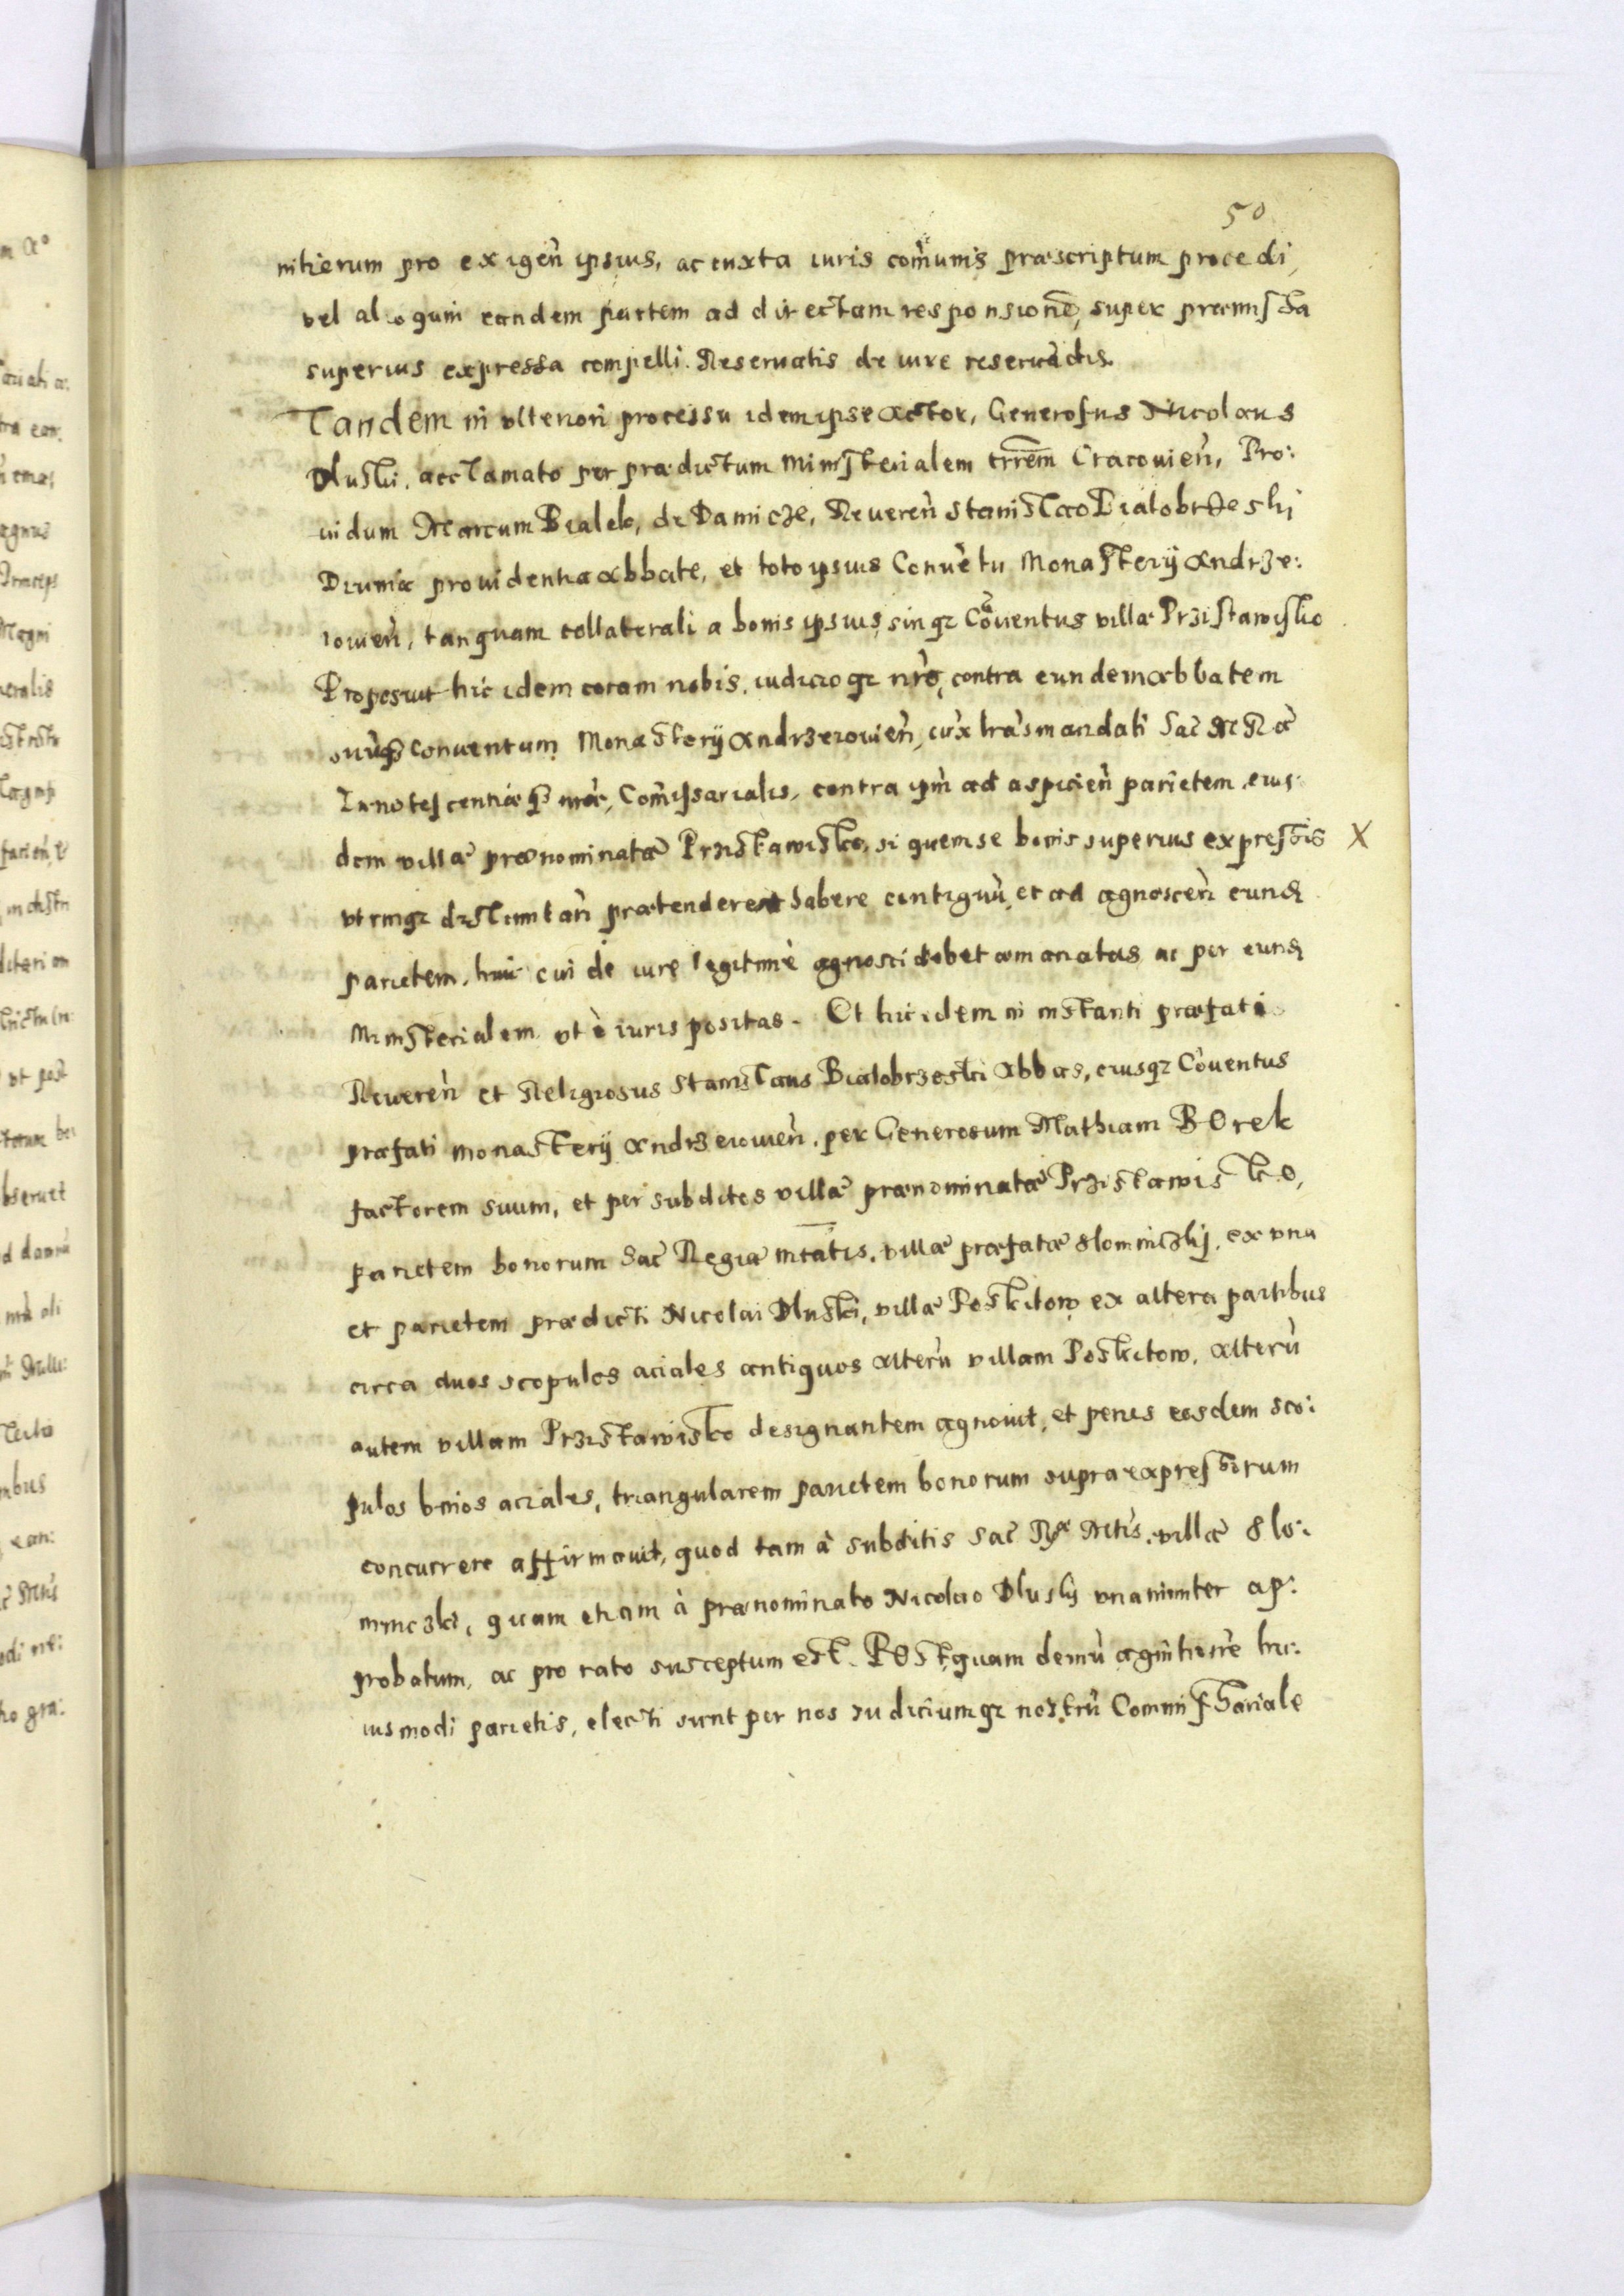 50
nitierum pro exigeǹ ipsius, ac iuxta iuris com̀unis præscriptum procedi,
vel alioquin eandem partem ad directam responsionē, super præmissa
superius expressa compelli. Reseruatis de iure reseruàdis.
Tandem in vlteriori processu idem ipse Actor, Generosus Nicolaus
Dluski, acclamato per prædictum Ministerialem trrēm Cracouieǹ, Pro:
uidum Marcum Bialek, de Damicze, Reuereǹ Stanislao Bialobrzeski
Diuina prouidentia Abbate, et toto ipsius Conuètu Monasterij Andrze:
iouieǹ, tanquam collaterali a bonis ipsius, sinqȝ Cōuentus villæ Przistawisko
Proposuit hic idem coram nobis, iudicioqȝ nr̀o, contra eundem Abbatem
Conuentum Monasterij Andrzeiouieǹ, mandati Sac̀
Innotescentiæ Com̀issarialis, contra ipm̀ ad aspicieǹ parietem eius:
dem villæ prænominatæ Przistawisko, si quem se bonis superius expressis X
vtrinqȝ prætenderent habere contiguù, et ad agnosceǹ eund̨
parietem, cui de iure legitimè agnosci debet ac per eund̨
Ministerialem vt è iuris positas. Et hic idem in instanti præfati
Reuereǹ et Religiosus Stanislaus Bialobrzeski Abbas, eiusqȝ Còuentus
præfati monasterij Andrzeiouieǹ, per Generosum Mathiam Borek
factorem suum, et per subditos villæ prænominatæ Przistawisko,
parietem bonorum Sac̀ Regiæ mtātis, villæ præfatæ Slomniczkj, ex vna
et parietem prædicti Nicolai Dluski, villæ Poskitow ex altera partibus
circa duos scopulos aciales antiquos alterù villam Poskitow, alterù
autem villam Przistawisko designantem agnouit, et penes eosdem sco:
pulos binos aciales, triangularem parietem bonorum supra expressorum
concurrere affirmauit, quod tam à subditis Sac̀ Ræ Mtis, villæ Slo:
mniczki, quam etiam à prænominato Nicolao Dluskj vnanimiter ap:
probatum, ac pro rato susceptum est. Postquam demù agnitionè hu:
iusmodi parietis, electi sunt per nos iudiciumqȝ nostrù Commissariale